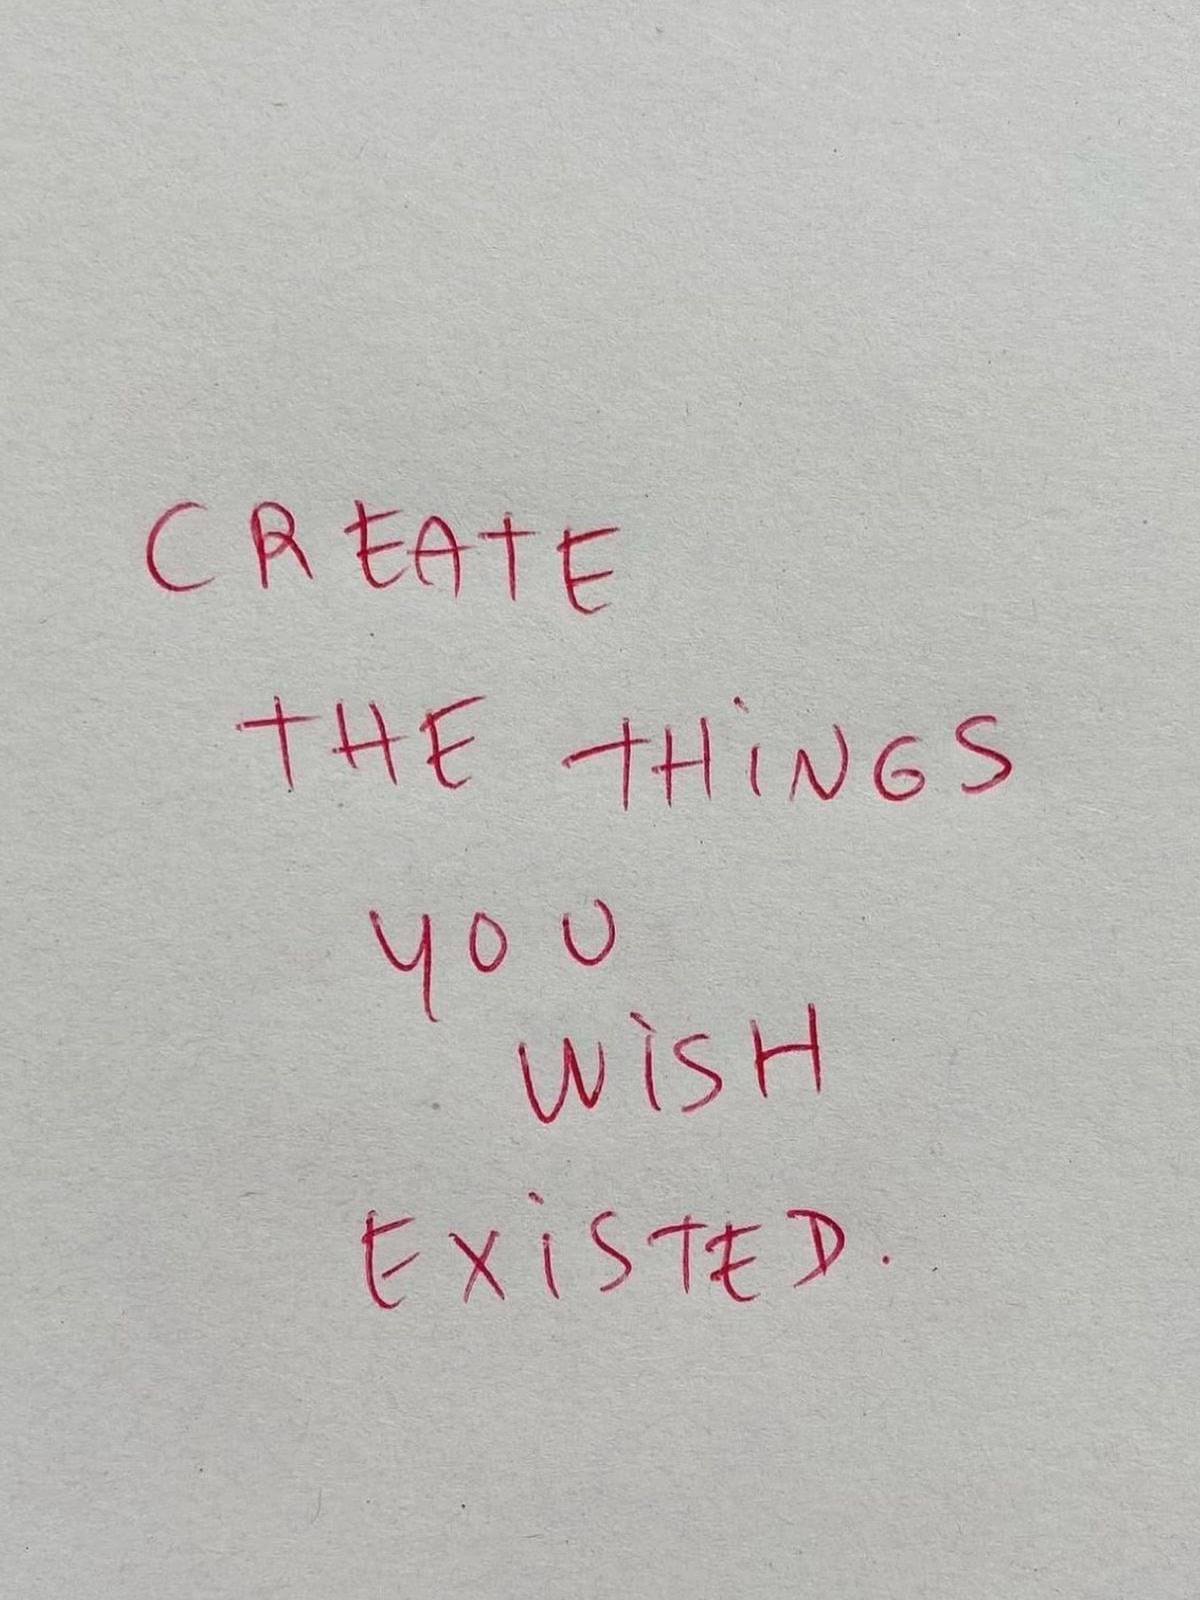 CREATE
THE THiNGS
YOU
WiSH
EXiSTED.